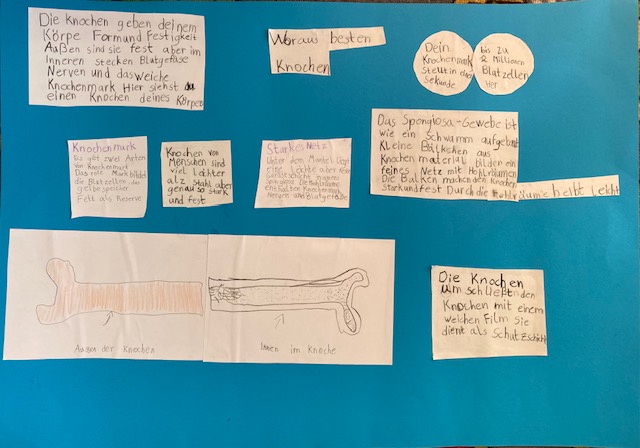 Die Knochen geben deinem
Körpe Form und Festigkeit
Außen sind sie fest aber im
Inneren stecken Blutgefäse
Nerven und das Weiche
Knochenmark Hier siehst
einen Knochen deines Körpers
Woraus besten
Knochen
Dein
Knochenmark
Stellt in einer
Sekunde
bis zu
2 Millionen
Blutzellen
Her
Das Spongiosa-Gewebe ist
wie ein Schwamm aufgebaut
Kleine Bälkchen aus
Knochen material bilden ein
feines Netz mit Hohlräumen
Die Balken machen den Knochen
Stark und fest Durch die Hohlräume beibt Leicht
Knochenmark
Es gibt zwei Arten
von Knochenmark
Das rote Mark bildet
die Blutzellen das
gelbe speicher
Fett als Reserve
Knochen von
Menschen sind
viel Leichter
alz Stahl aber
genau so stark
und fest
Starkes Netz
Unter dem Mantel liegt
eine Leichte aber
enthalten Knochenmark
Nerven und Blutgefäße
Augen der Knochen
Innen im Knoche
Die Knochen
Um schließt den
Knochen mit einem
weichen Film Sie
dient als Schutzschicht